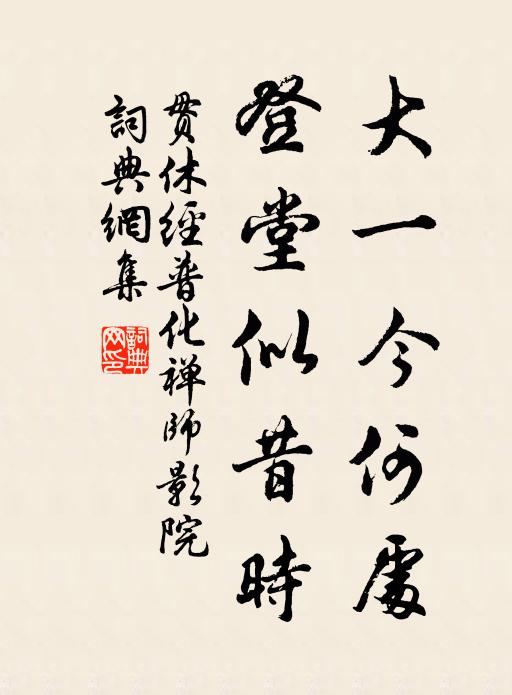 大一今何處
登堂似昔時
贯休經普化禅師影院
詞典網集
詞典
网印